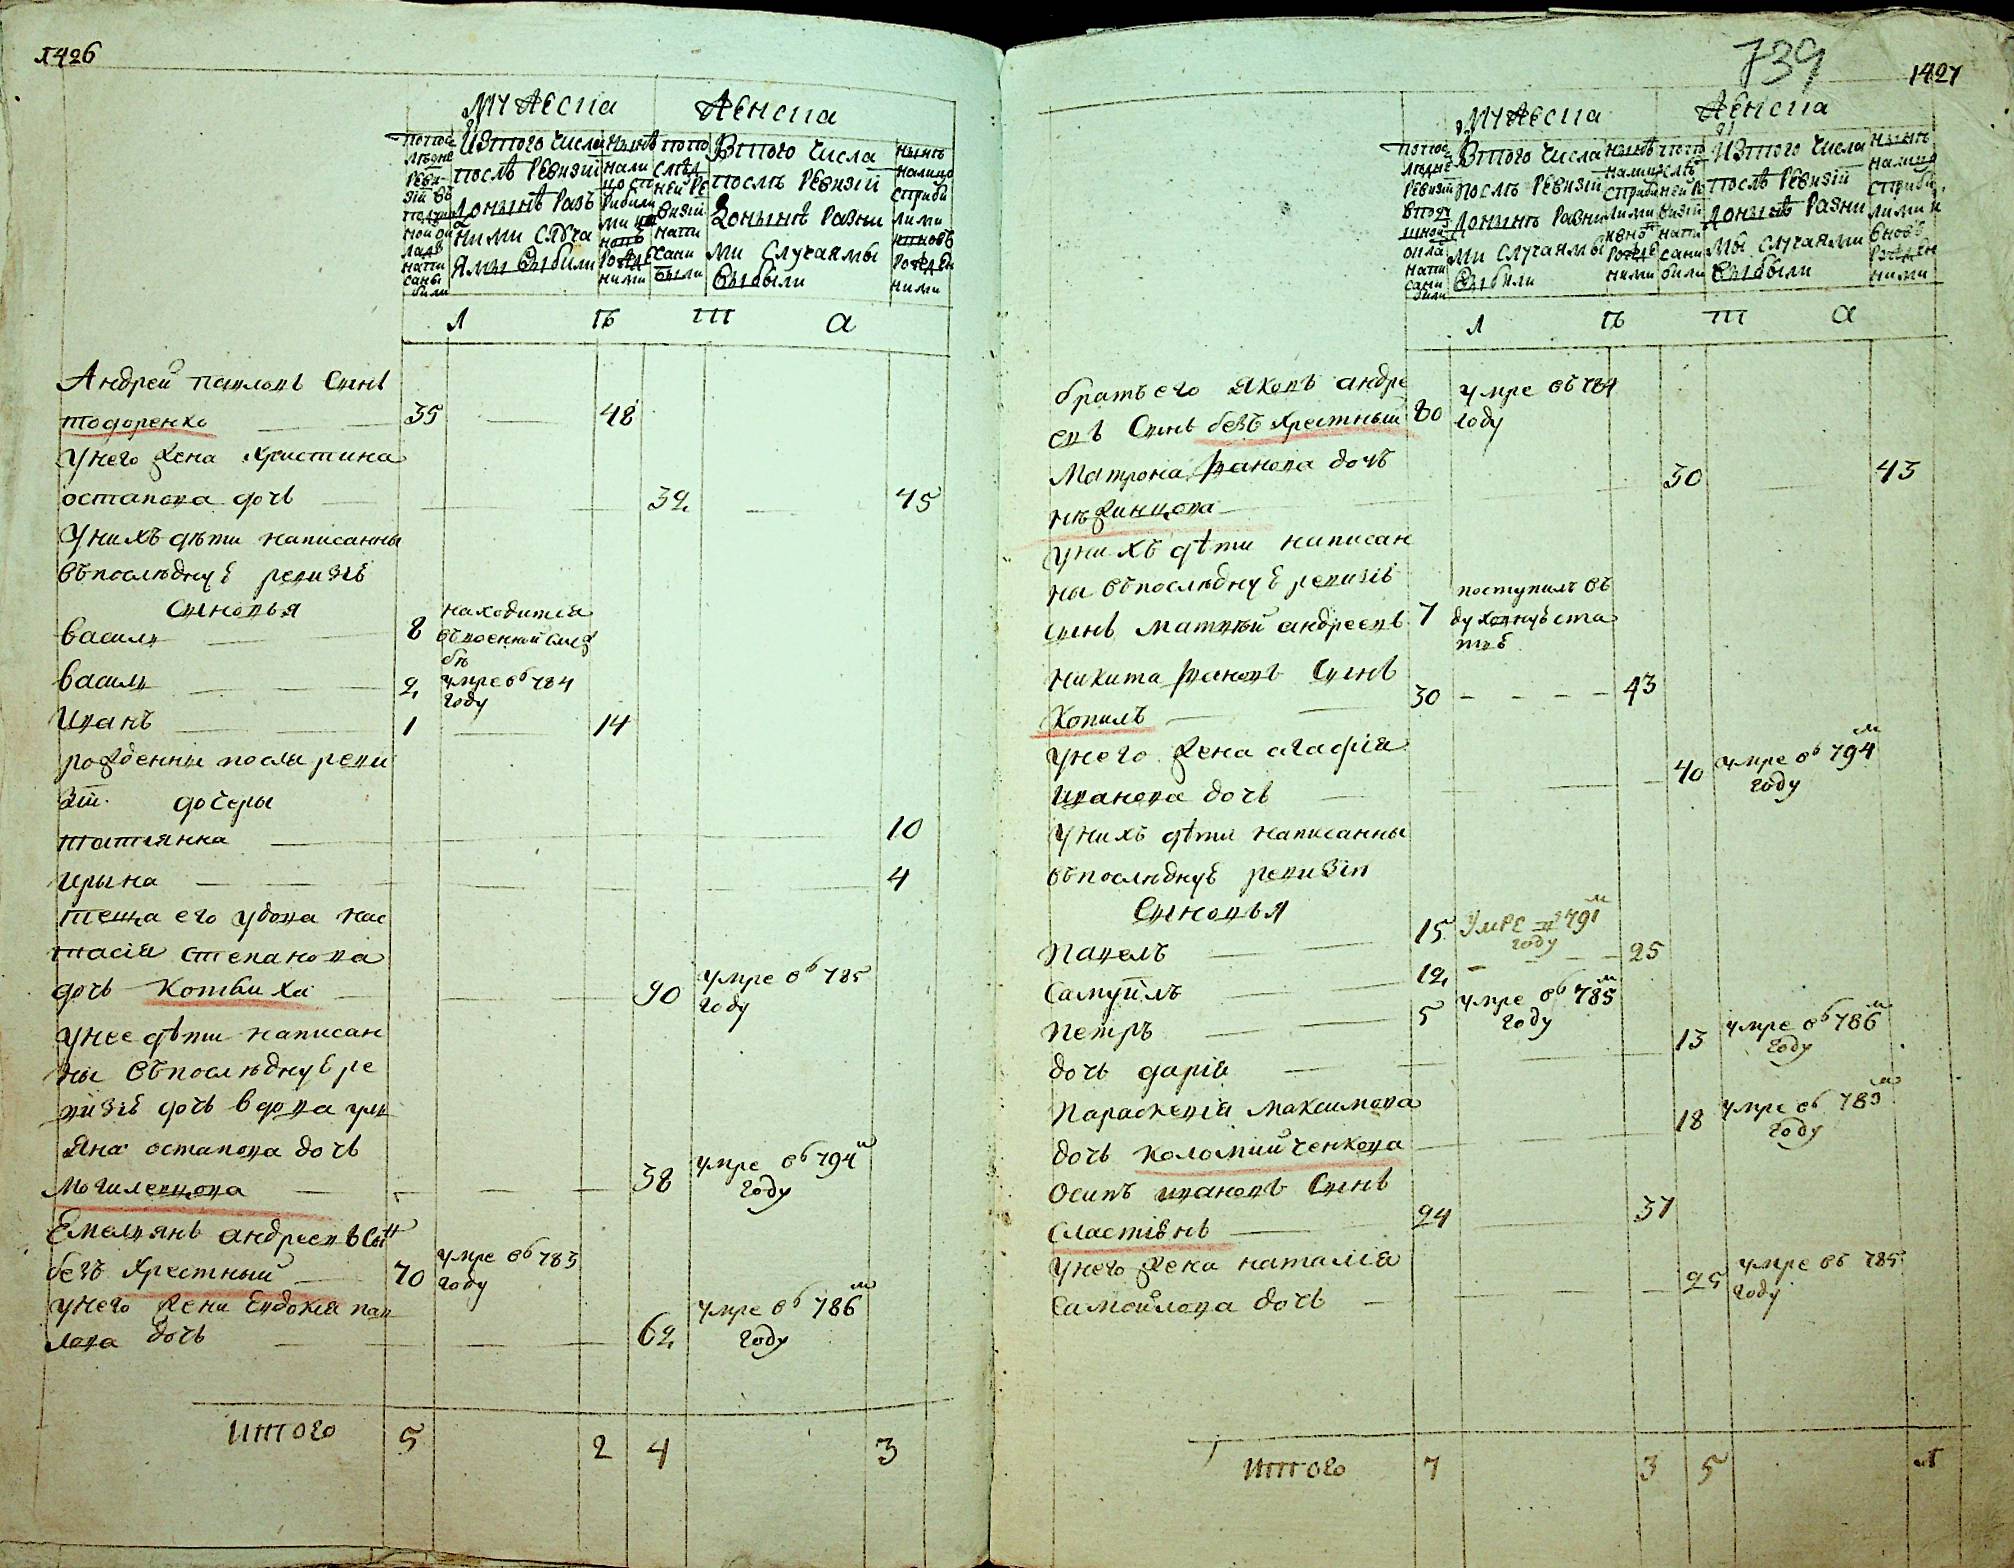 1426
Мужеска Женска
По послѣдне ревизіи въ подушной окладъ написаны были
Изтого числа послѣ ревизіи донынѣ разными случаями выбыли
Нынѣ на лицо с прибылими и вновь рожденними
По послѣдней ревизіи написани были
Втого числа послѣ ревизіи донынѣ разними случаямы выбыли
Нынѣ налицо с прибилими и вновь рожденними
Л Ѣ Т А
Андрей павловъ сынъ
тодоренко 35 48
Унего жена христина
остапова дочь 32 45
Унихъ дѣти написанны
въпослѣднуЪ ревизіЪ
Сыновья
василь 8 находится въвоенной службѣ
василь 2 умре въ 784 году
Иванъ 1 14
рожденны посли реви
зіи. дочеры
татіянка 10
ирына 4
теща его удова нас
тасія степанова
дочь котвиха 90 умре въ 785 году
Унее дѣти написан
ны въпослѣднуЪ ре
визіЪ дочь вдова ули
яна остапова дочь
могилевцова 38 умре въ 794м году
Емелиянъ андреевъ сынъ
безъ хрестный 70 умре въ 783 году
Унего жена Евдокія пав
лова дочь 62 умре въ 786м году
Итого 5 2 4 3
739
1427
Мужеска Женска
По послѣдне ревизіи в подушной оклад написани били
Втого числа послѣ ревизіи донынѣ разними случаямы выбили
Нынѣ налицо с прибилими и вновь рожденними
По послѣдней ревизіи написани били
Изтого числа послѣ ревизіи донынѣ разнимы случаями выбыли
Нынѣ налицо с прибилими и вновь рожденними
Л Ѣ Т А
братъ его яковъ андре
евъ сынъ безъ хрестный 80 умре въ 784 году
Матрона иванова дочь
нѣжинцова 30 43
унихъ дѣти написан
ны въпослѣднуЪ ревизіЪ
сынъ матвѣй андреевъ 7 поступилъ въ духовнуЪ ста
никита ивановъ сынъ
Копилъ 30 43
унего жена агафія
иванова дочь 40 умре въ 794м году
Унихъ дѣти написанны
въпослѣднуЪ ревизіи
Сыновья
Павелъ 15 Умре в 791м году
Самуйлъ 12 25
Петръ 5 умре въ 785м году
дочь дарія 13 умре въ 786м году
Параскевія максимова
дочь коломийченкова 18 умре въ 783м году
Осипъ ивановъ сынъ
сластіонъ 24 37
унего жена наталія
Самойлова дочь 25 умре въ 785 году
Итого 7 3 5 1